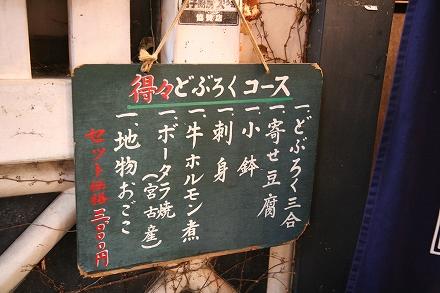 得々どぶろくコース
一、どぶろく三合
一、寄せ豆腐
一、小鉢
一、刺身
一、牛ホルモン煮
一、ボータラ焼
(宮古産)
一、地物おごこ
セット価格三、〇〇〇円